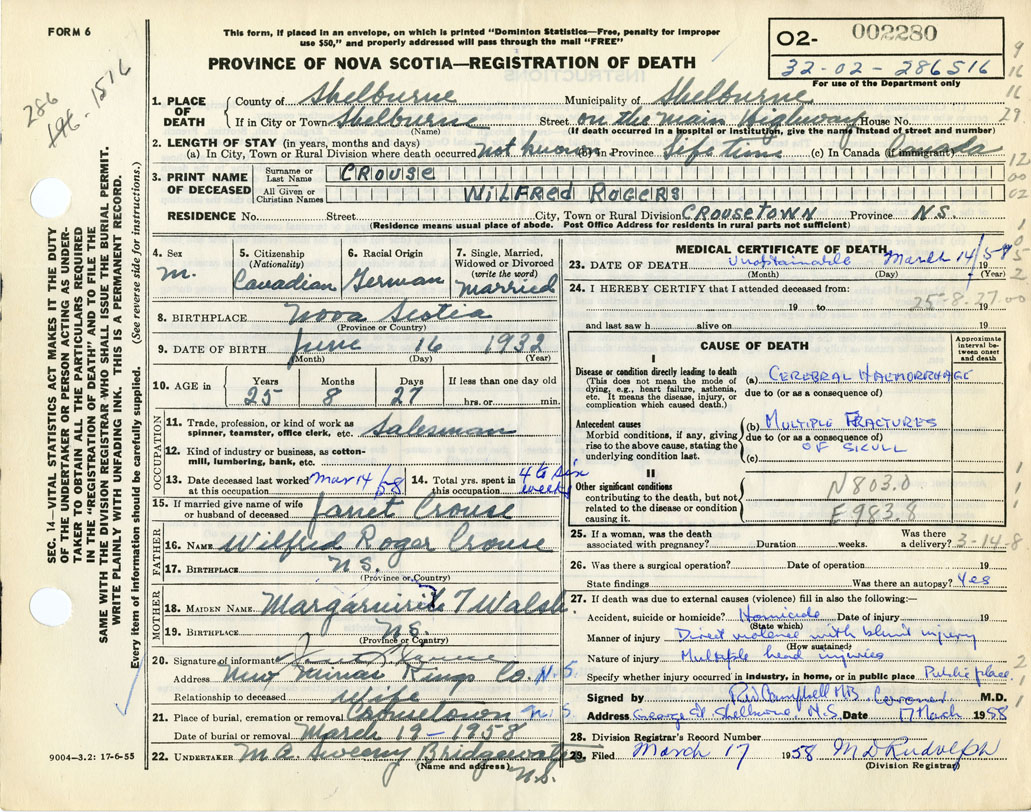 FORM 6
This form, if placed in an envelope, on which is printed "Dominion Statistics—Free, penalty for improper
use $50," and properly addressed will pass through the mail "FREE"
PROVINCE OF NOVA SCOTIA—REGISTRATION OF DEATH
O2- 002280
32-02-286516
For use of the Department only
286
196. 1516
1. PLACE OF DEATH
County of Shelburne Municipality of Shelburne
If in City or Town Shelburne Street on the main Highway House No.
(Name) (If death occurred in a hospital or institution, give the name instead of street and number)
2. LENGTH OF STAY (in years, months and days)
(a) In City, Town or Rural Division where death occurred not known (b) in Province Life time (c) In Canada (if immigrant) Canada
3. PRINT NAME OF DECEASED
Surname or Last Name CROUSE
All Given or Christian Names WILFRED ROGERS
RESIDENCE No. Street City, Town or Rural Division CROUSETOWN Province N.S.
(Residence means usual place of abode. Post Office Address for residents in rural parts not sufficient)
4. Sex m.
5. Citizenship (Nationality) Canadian
6. Racial Origin German
7. Single, Married, Widowed or Divorced (write the word) married
8. BIRTHPLACE Nova Scotia
(Province or Country)
9. DATE OF BIRTH June 16 1932
(Month) (Day) (Year)
10. AGE in Years 25 Months 8 Days 27 If less than one day old hrs. or min.
OCCUPATION
11. Trade, profession, or kind of work as spinner, teamster, office clerk, etc. Salesman
12. Kind of industry or business, as cotton-mill, lumbering, bank, etc.
13. Date deceased last worked at this occupation Mar 14/58
14. Total yrs. spent in this occupation 4 to six weeks
15. If married give name of wife or husband of deceased Janet Crouse
FATHER
16. NAME Wilfred Roger Crouse
17. BIRTHPLACE N.S.
(Province or Country)
MOTHER
18. MAIDEN NAME T Walsh
19. BIRTHPLACE N.S.
(Province or Country)
20. Signature of informant
Address Kings Co. N.S.
Relationship to deceased Wife
21. Place of burial, cremation or removal Crousetown N.S.
Date of burial or removal March 19-1958
22. UNDERTAKER M A Sweeny Bridgewater
(Name and address) N.S.
MEDICAL CERTIFICATE OF DEATH
23. DATE OF DEATH Unobtainable March 14/58 19
(Month) (Day) (Year)
24. I HEREBY CERTIFY that I attended deceased from:
19 to 19
25-8-27.00
and last saw h alive on 19
CAUSE OF DEATH
Approximate interval between onset and death
I
Disease or condition directly leading to death
(This does not mean the mode of dying, e.g., heart failure, asthenia, etc. It means the disease, injury, or complication which caused death.)
(a) CEREBRAL HAEMORRHAGE
due to (or as a consequence of)
Antecedent causes
Morbid conditions, if any, giving rise to the above cause, stating the underlying condition last.
(b) MULTIPLE FRACTURES
due to (or as a consequence of)
OF SKULL
(c)
II
Other significant conditions
contributing to the death, but not related to the disease or condition causing it.
N803.0
E983.8
25. If a woman, was the death associated with pregnancy? Duration weeks. Was there a delivery? 3-14-8
26. Was there a surgical operation? Date of operation 19
State findings Was there an autopsy? Yes
27. If death was due to external causes (violence) fill in also the following:—
Accident, suicide or homicide? Homicide Date of injury 19
(State which)
Manner of injury Direct violence with blunt injury
(How sustained)
Nature of injury Multiple head injuries
Specify whether injury occurred in industry, in home, or in public place Public place.
Signed by R.W. Campbell MB Coroner M.D.
Address George St Shelburne, N.S. Date 17 March 1958
28. Division Registrar's Record Number
29. Filed March 17 1958 M D Rudolph
(Division Registrar)
SEC. 14—VITAL STATISTICS ACT MAKES IT THE DUTY
OF THE UNDERTAKER OR PERSON ACTING AS UNDER-
TAKER TO OBTAIN ALL THE PARTICULARS REQUIRED
IN THE "REGISTRATION OF DEATH" AND TO FILE THE
SAME WITH THE DIVISION REGISTRAR WHO SHALL ISSUE THE BURIAL PERMIT.
WRITE PLAINLY WITH UNFADING INK. THIS IS A PERMANENT RECORD.
Every item of information should be carefully supplied. (See reverse side for instructions.)
9004—3.2: 17-6-55